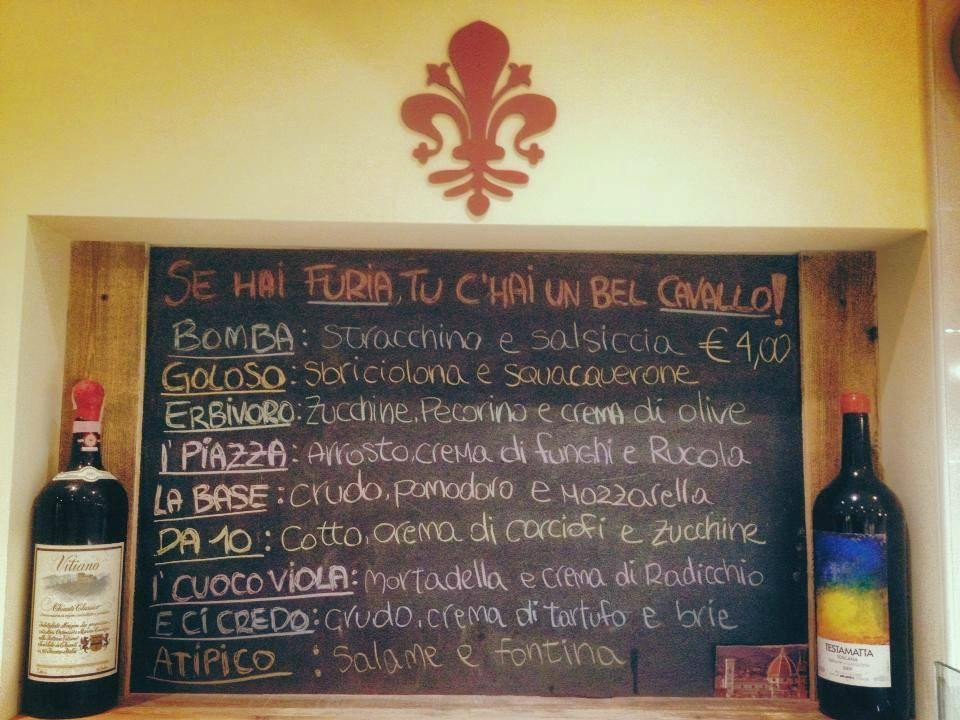 SE HAI FURIA, TU C'HAI UN BEL CAVALLO!
BOMBA: Stracchino e salsiccia €4,00
GOLOSO: Sbriciolona e squacquerone
ERBIVORO: Zucchine, Pecorino e crema di olive
I' PIAZZA: Arrosto, crema di funghi e Rucola
LA BASE: crudo, pomodoro e mozzarella
DA 10: Cotto, crema di carciofi e zucchine
I' CUOCO VIOLA: mortadella e crema di Radicchio
E CI CREDO: crudo, crema di tartufo e brie
ATIPICO: Salame e fontina
Vitiano
Chianti Classico
TESTAMATTA
TOSCANA